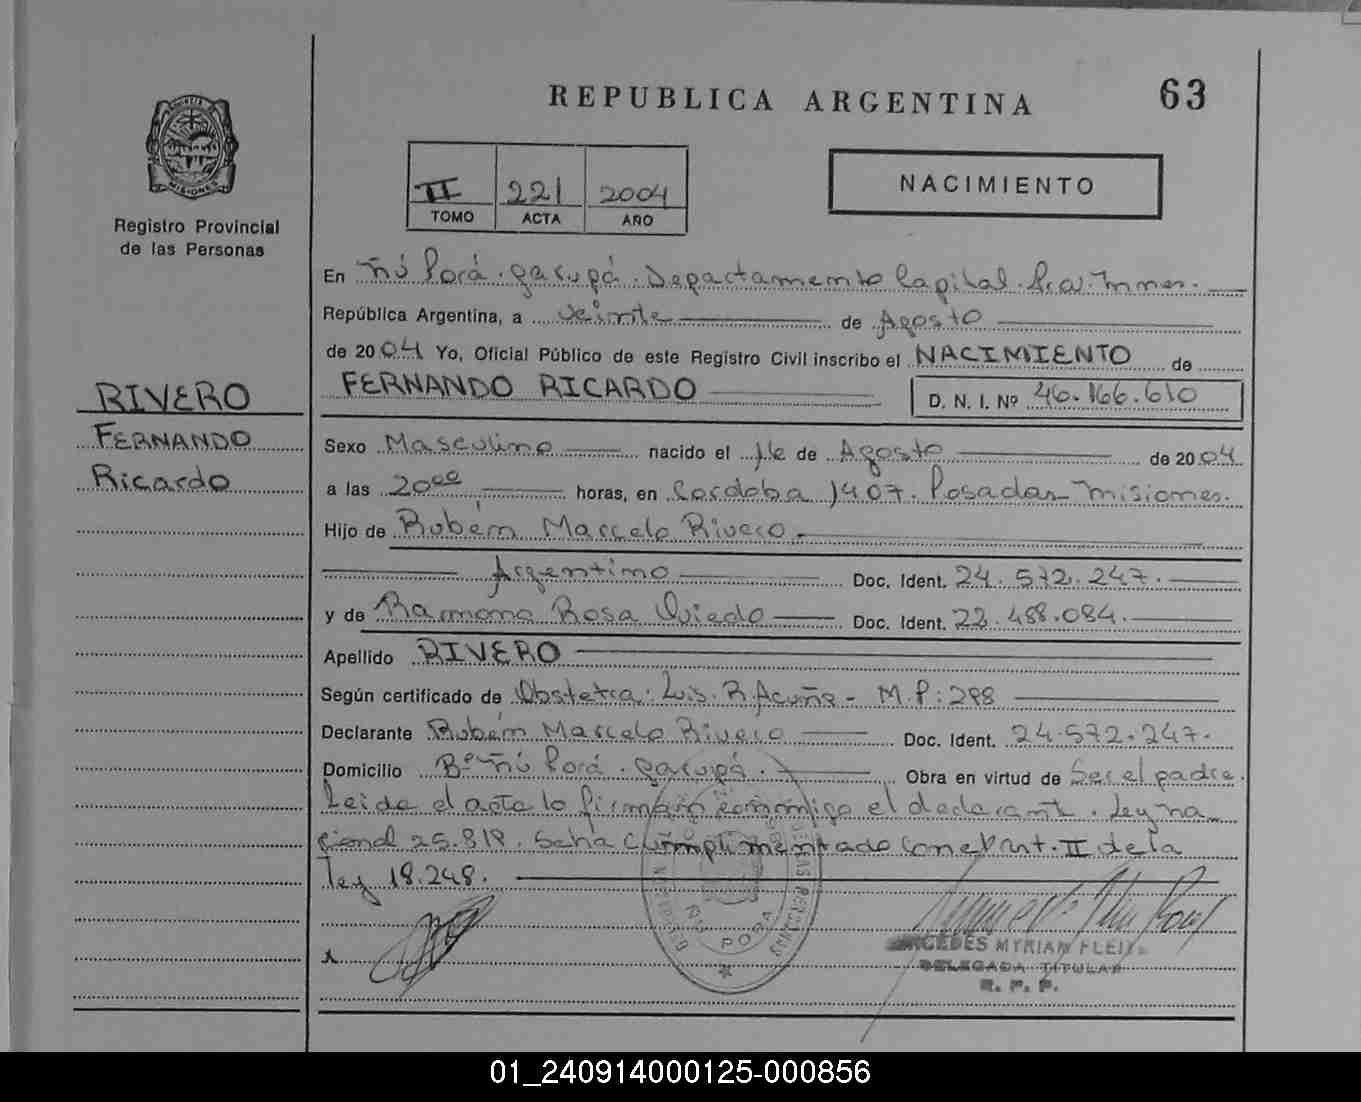 REPUBLICA ARGENTINA
63
MISIONES
Registro Provincial
de las Personas
II 221 2004
TOMO ACTA AÑO
NACIMIENTO
En Ñú Porá. Garupá. Departamento Capital.
República Argentina, a veinte de Agosto
de 2004 Yo, Oficial Público de este Registro Civil inscribo el NACIMIENTO de
FERNANDO RICARDO D. N. I. Nº 46.166.610
RIVERO
FERNANDO
Ricardo
Sexo Masculino nacido el de Agosto de 2004
a las 20⁰⁰ horas, en Cordoba 1407. Posadas Misiones.
Hijo de Rubén Marcelo Rivero
Argentino Doc. Ident. 24.572.247.
y de Ramona Rosa Oviedo Doc. Ident. 22.488.084.
Apellido RIVERO
Según certificado de Obstetra: Luis R. Acuña - M.P: 298
Declarante Rubén Marcelo Rivero Doc. Ident. 24.572.247.
Domicilio Bº Ñú Porá. Garupá. Obra en virtud de Ser el padre.
Leida el acta lo firman conmigo el declarante. Ley na
cional 25.819. Se ha cumplimentado con el Art. II de la
Ley 18.248.
ÑU PORA
MYRIAM FLEIT
DELEGADA TITULAR
R. P. P.
01_240914000125-000856